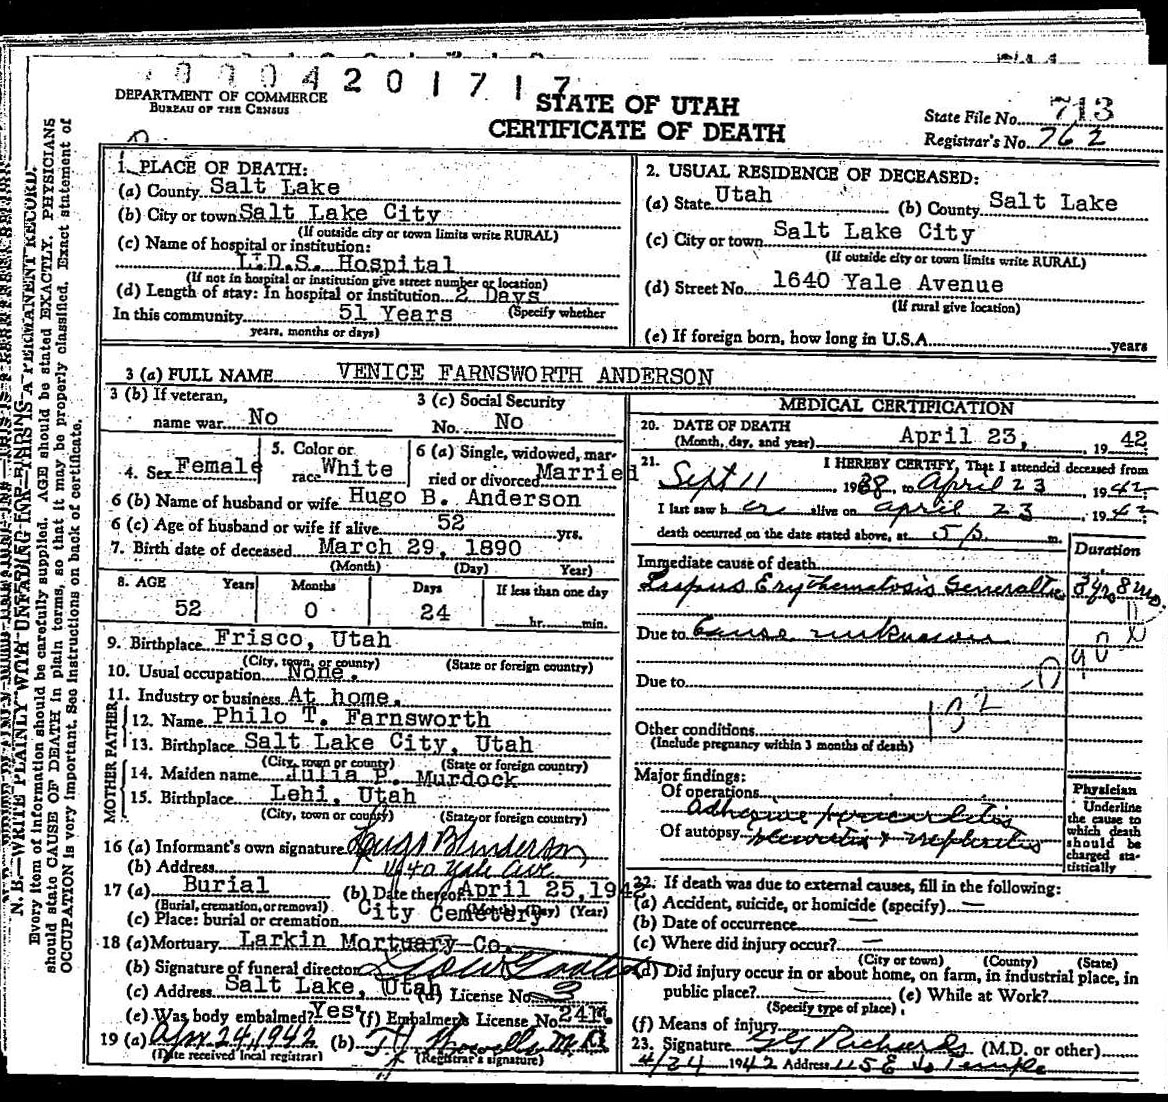 0004201717
DEPARTMENT OF COMMERCE
BUREAU OF THE CENSUS
STATE OF UTAH
CERTIFICATE OF DEATH
State File No. 713
Registrar's No. 762
1. PLACE OF DEATH:
(a) County Salt Lake
(b) City or town Salt Lake City
(If outside city or town limits write RURAL)
(c) Name of hospital or institution:
L.D.S. Hospital
(If not in hospital or institution give street number or location)
(d) Length of stay: In hospital or institution 2 Days
In this community 51 Years (Specify whether
years, months or days)
2. USUAL RESIDENCE OF DECEASED:
(a) State Utah (b) County Salt Lake
(c) City or town Salt Lake City
(If outside city or town limits write RURAL)
(d) Street No. 1640 Yale Avenue
(If rural give location)
(e) If foreign born, how long in U.S.A. years
3 (a) FULL NAME VENICE FARNSWORTH ANDERSON
3 (b) If veteran,
name war. No
3 (c) Social Security
No. No
4. Sex Female
5. Color or
race White
6 (a) Single, widowed, mar-
ried or divorced Married
6 (b) Name of husband or wife Hugo B. Anderson
6 (c) Age of husband or wife if alive 52 yrs.
7. Birth date of deceased March 29, 1890
(Month) (Day) Year)
8. AGE Years Months Days If less than one day
52 0 24 hr. min.
9. Birthplace Frisco, Utah
(City, town, or county) (State or foreign country)
10. Usual occupation None.
11. Industry or business At home.
FATHER
12. Name Philo T. Farnsworth
13. Birthplace Salt Lake City, Utah
(City, town or county) (State or foreign country)
MOTHER
14. Maiden name Julia P. Murdock
15. Birthplace Lehi, Utah
(City, town or county) (State or foreign country)
16 (a) Informant's own signature Hugo B Anderson
(b) Address 1640 Yale Ave
17 (a) Burial (b) Date thereof April 25, 1942
(Burial, cremation, or removal) (Month) (Day) (Year)
(c) Place: burial or cremation City Cemetery
18 (a) Mortuary Larkin Mortuary Co.
(b) Signature of funeral director
(c) Address Salt Lake, Utah (d) License No. 3
(e) Was body embalmed? Yes (f) Embalmer's License No. 241.
19 (a) Apr 24, 1942 (b) T J Howells M.D.
(Date received local registrar) (Registrar's signature)
MEDICAL CERTIFICATION
20. DATE OF DEATH
(Month, day, and year) April 23, 19 42
21. I HEREBY CERTIFY, That I attended deceased from
Sept 11 1938, to April 23 1942
I last saw h er alive on April 23 1942
death occurred on the date stated above, at 5 p. m.
Duration
Immediate cause of death
Lupus Erythematosis Generalized 3 yrs 8 mo.
Due to Cause unknown
Due to
Other conditions
(Include pregnancy within 3 months of death)
Major findings:
Of operations
Adhesive pericarditis
Of autopsy pleuritis & nephritis
Physician
Underline
the cause to
which death
should be
charged sta-
tistically
22. If death was due to external causes, fill in the following:
(a) Accident, suicide, or homicide (specify) —
(b) Date of occurrence —
(c) Where did injury occur? —
(City or town) (County) (State)
(d) Did injury occur in or about home, on farm, in industrial place, in
public place? — (e) While at Work?
(Specify type of place)
(f) Means of injury
23. Signature G G Richards (M.D. or other)
4/24 1942 Address 115 E So Temple
N. B.—WRITE PLAINLY WITH UNFADING INK—THIS IS A PERMANENT RECORD.
Every item of information should be carefully supplied. AGE should be stated EXACTLY. PHYSICIANS
should state CAUSE OF DEATH in plain terms, so that it may be properly classified. Exact statement of
OCCUPATION is very important. See instructions on back of certificate.